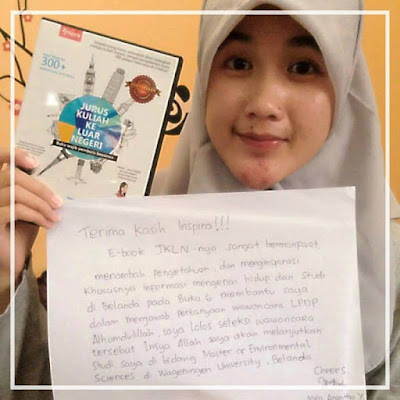 300+
JURUS
KULIAH KE
LUAR
NEGERI
Terima kasih Inspira!!!
E-book JKLN-nya sangat bermanfaat,
menambah pengetahuan, dan menginspirasi
Khususnya informasi mengenai hidup dan studi
di Belanda pada Buku 6 membantu saya
dalam menjawab pertanyaan wawancara LPDP
Alhamdulillah, saya lolos seleksi wawancara
tersebut Insya Allah saya akan melanjutkan
studi saya di bidang Master of Environmental
Sciences di Wageningen University, Belanda
Cheers,